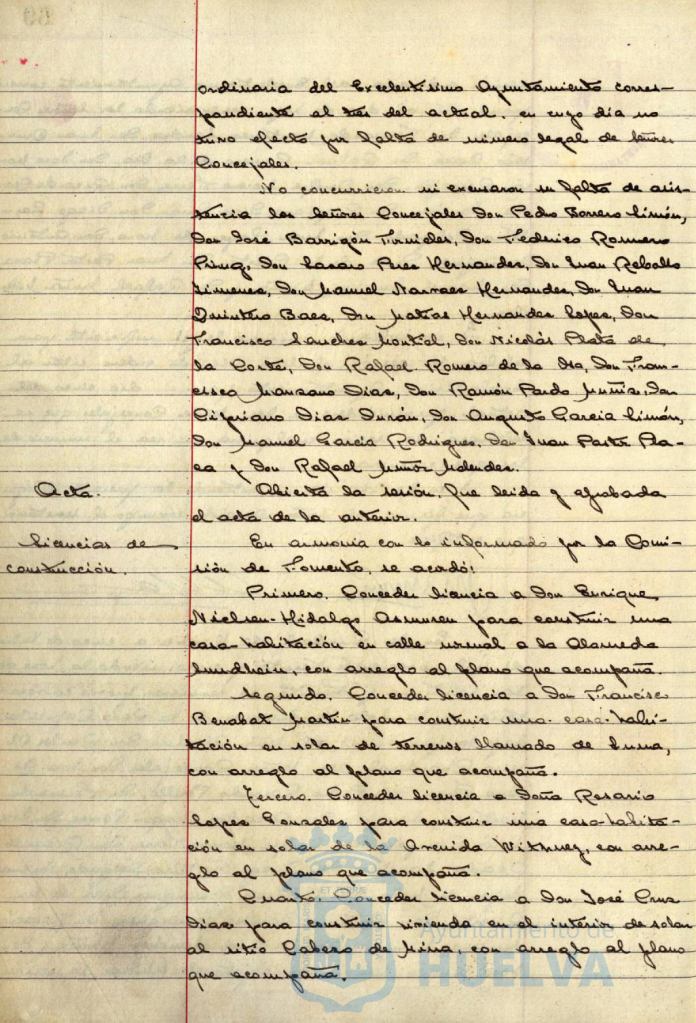 ordinaria del Excelentísimo Ayuntamiento corres-
pondiente al tres del actual, en cuyo día no
tuvo efecto por falta de número legal de Señores
Concejales.
No concurrieron ni excusaron su falta de asis-
tencia los Señores Concejales Don Pedro Borrero Limón,
Don José Barrigón Fornieles, Don Federico Romero
Don Lazaro Perez Hernandez, Don Juan Rebollo
Jimenez, Don Manuel Narvaez Hernandez, Don Juan
Quintero Baez, Don Matias Hernandez Lopez, Don
Francisco Sanchez Montiel, Don Nicolás Plata de
la Corte, Don Rafael Romero de la Osa, Don Fran-
cisco Manzano Diaz, Don Ramón Pardo Muñiz, Don
Cipriano Diaz Durán, Don Augusto Garcia Limón,
Don Manuel García Rodriguez, Don Juan Pastor Pla-
za y Don Rafael Muñoz Melendez.
Acta.
Abierta la sesión, fue leida y aprobada
el acta de la anterior.
Licencias de
construcción.
En armonía con lo informado por la Comi-
sión de Fomento, se acordó:
Primero. Conceder licencia a Don Enrique
Nielsen-Hidalgo para construir una
casa-habitación en calle normal a la Alameda
Sundhein, con arreglo al plano que acompaña.
Segundo. Conceder licencia a Don Francisco
Benabat Martin para construir una casa-habi-
tación en solar de terrenos llamado de
con arreglo al plano que acompaña.
Tercero. Conceder licencia a Doña Rosario
Lopez Gonzalez para construir una casa-habita-
ción en solar de la Avenida con arre-
glo al plano que acompaña.
Cuarto. Conceder licencia a Don José Cruz
Diaz para construir vivienda en el interior de solar
al sitio Cabezo de Mina, con arreglo al plano
que acompaña.
Ayuntamiento de
HUELVA